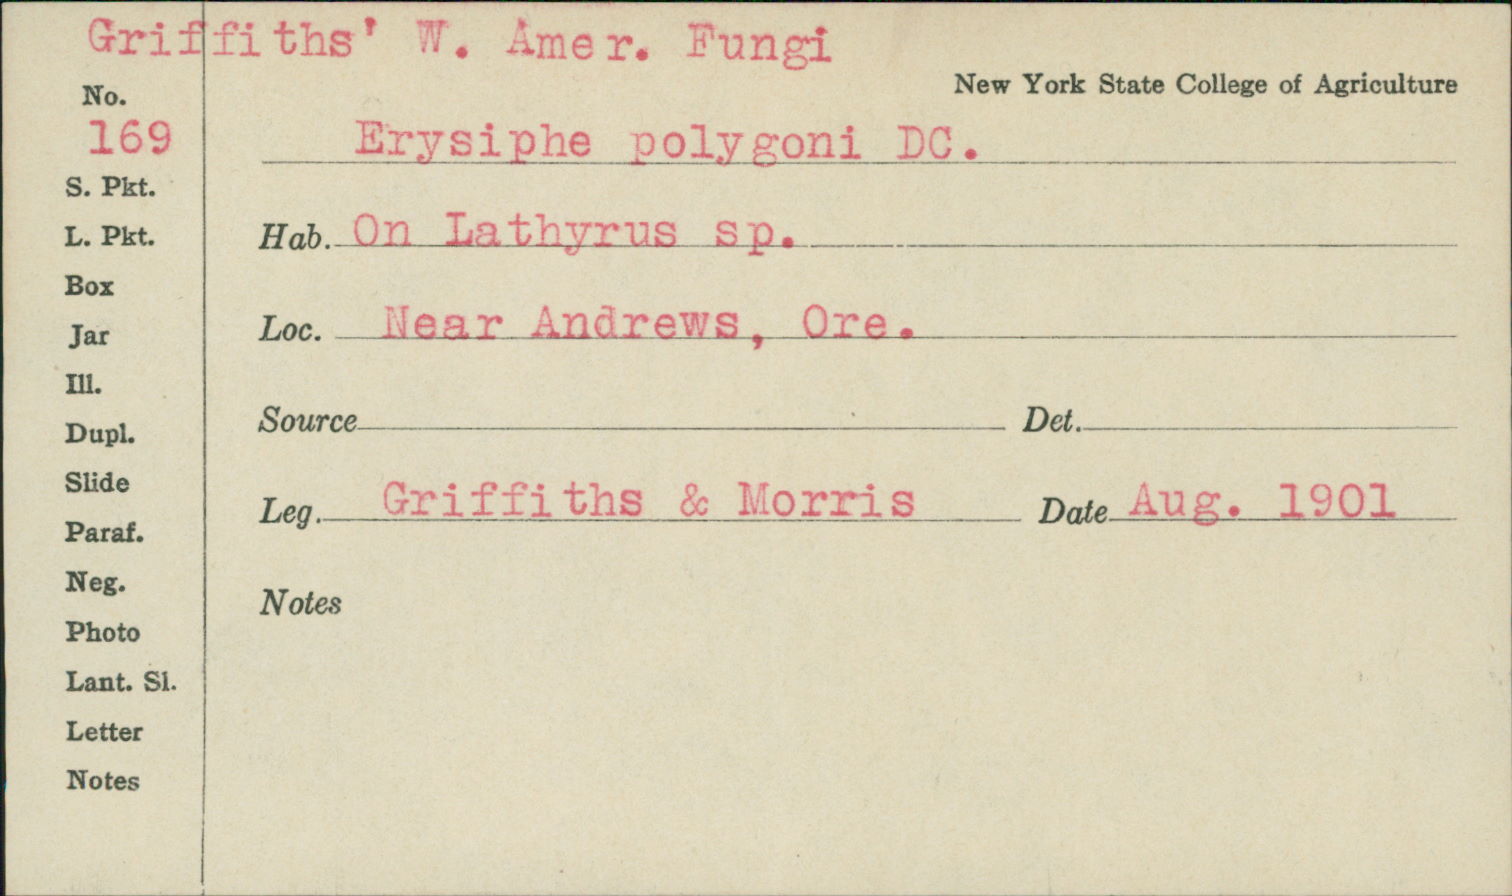 Griffiths' W. Amer. Fungi
New York State College of Agriculture
No.
169
Erysiphe polygoni DC.
S. Pkt.
L. Pkt.
Hab. On Lathyrus sp.
Box
Loc. Near Andrews, Ore.
Jar
Ill.
Source Det.
Dupl.
Slide
Leg. Griffiths & Morris Date Aug. 1901
Paraf.
Neg.
Notes
Photo
Lant. Sl.
Letter
Notes